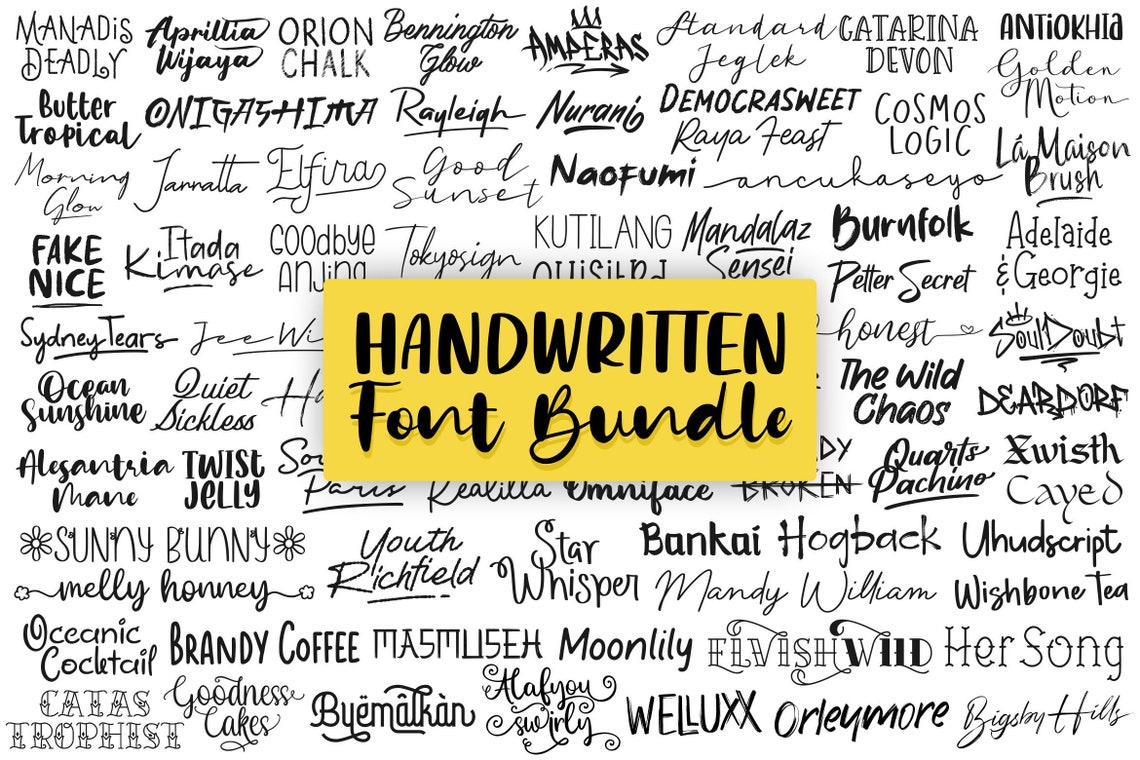 MANADIS DEADLY
Aprillia Wijaya
ORION CHALK
Bennington Glow
AMPERAS
Standard Jeglek
CATARINA DEVON
ANTIOKHIA
Golden Motion
Butter Tropical
ONIGASHIMA
Rayleigh
Nurani
DEMOCRASWEET
Raya Feast
COSMOS LOGIC
Lá Maison Brush
Morning Glow
Jannatta
Elfira
Good Sunset
Naofumi
ancukaseyo
FAKE NICE
Itada Kimase
GOODbye ANJing
Tokyosign
KUTILANG
Mandalaz Sensei
Burnfolk
Petter Secret
Adelaide & Georgie
Sydney Tears
Jee Wi
HANDWRITTEN
Font Bundle
honest
Soul Doubt
Ocean Sunshine
Quiet Sickless
The Wild Chaos
DEARDORF
Alesantria Mane
TWIST JELLY
Paris
Realilla
Omniface
BROKEN
Quarts Pachino
Xwisth
Cayed
SUNNY BUNNY
Youth Richfield
Star Whisper
Bankai
Hogback
Uhudscript
melly honney
Mandy William
Wishbone Tea
Oceanic Cocktail
BRANDY COFFEE
MASMUSEH
Moonlily
ELVISH WILD
Her Song
CATAS TROPHIST
Goodness Cakes
Byëmâlkàn
Alafyou swirly
WELLUXX
Orleymore
Bigsby Hills